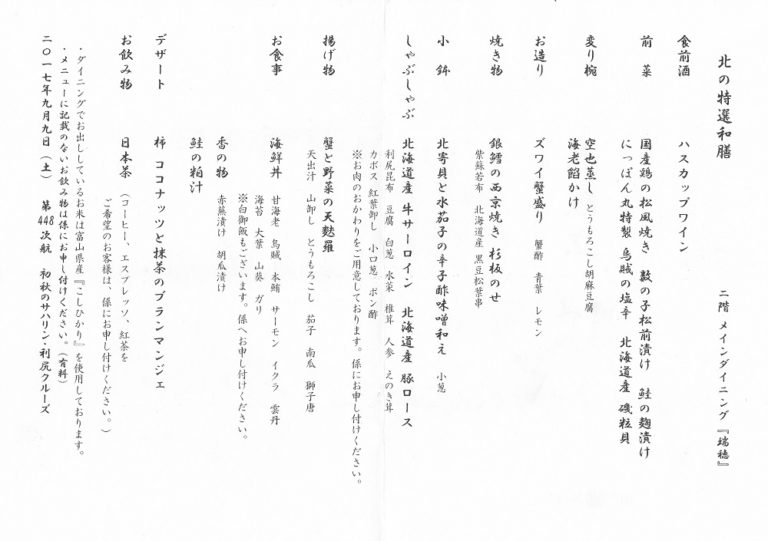 北の特選和膳
二階 メインダイニング『瑞穂』
食前酒 ハスカップワイン
前菜 国産鶏の松風焼き 数の子松前漬け 鮭の麹漬け
にっぽん丸特製 烏賊の塩辛 北海道産 磯粒貝
変り椀 空也蒸し とうもろこし胡麻豆腐
海老餡かけ
お造り ズワイ蟹盛り 蟹酢 青葉 レモン
焼き物 銀鱈の西京焼き 杉板のせ
紫蘇若布 北海道産 黒豆松葉串
小鉢 北寄貝と水茄子の辛子酢味噌和え 小葱
しゃぶしゃぶ 北海道産 牛サーロイン 北海道産 豚ロース
利尻昆布 豆腐 白葱 水菜 椎茸 人参 えのき茸
カボス 紅葉卸し 小口葱 ポン酢
※お肉のおかわりをご用意しております。係にお申し付けください。
揚げ物 蟹と野菜の天麩羅
天出汁 山卸し とうもろこし 茄子 南瓜 獅子唐
お食事 海鮮丼 甘海老 烏賊 本鮪 サーモン イクラ 雲丹
海苔 大葉 山葵 ガリ
※白御飯もございます。係へお申し付けください。
香の物 赤蕪漬け 胡瓜漬け
鮭の粕汁
デザート 柿 ココナッツと抹茶のブランマンジェ
お飲み物 日本茶 (コーヒー、エスプレッソ、紅茶を
ご希望のお客様は、係にお申し付けください。)
・ダイニングでお出ししているお米は富山県産『こしひかり』を使用しております。
・メニューに記載のないお飲み物は係にお申し付けください。(有料)
二〇一七年九月九日(土) 第448次航 初秋のサハリン・利尻クルーズ